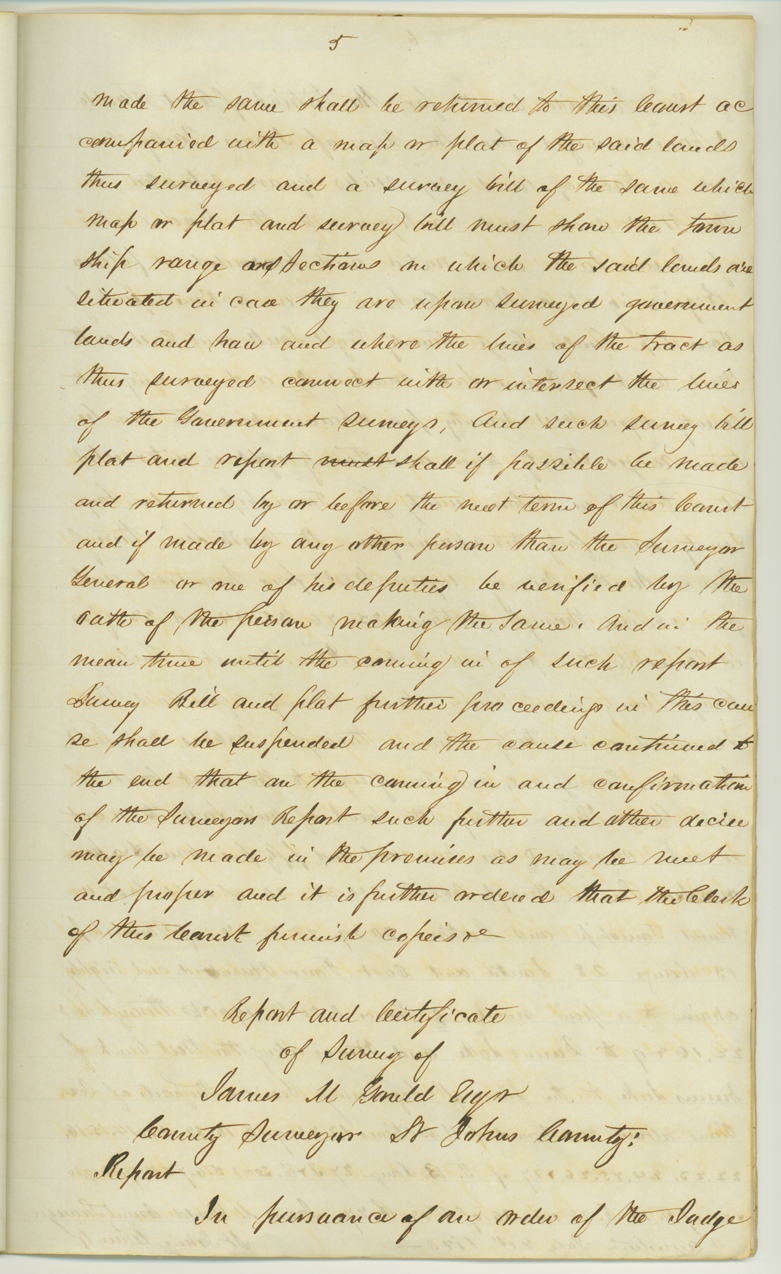 5
made the same shall be returned to this Court ac
companied with a map or plat of the said lands
thus surveyed and a survey bill of the same which
map or plat and survey bill must show the town
ship range and Sections in which the said lands are
situated in case they are upon surveyed government
lands and how and where the lines of the tract as
thus surveyed connect with or intersect the lines
of the Government surveys, And such survey bill
plat and report must shall if possible be made
and returned by or before the next term of this Court
and if made by any other person than the Surveyor
General or one of his deputies be verified by the
oath of the person making the same. And in the
mean time until the coming in of such report
Survey Bill and plat further proceedings in this cau
se shall be suspended and the cause continued to
the end that on the coming in and confirmation
of the Surveyors Report such further and other decree
may be made in the premises as may be meet
and proper and it is further ordered that the Clerk
of this Court furnish copeis &c
Report and Certificate
of Survey of
James M Gould Esqr
County Surveyor St Johns County:
Report
In pursuance of an order of the Judge